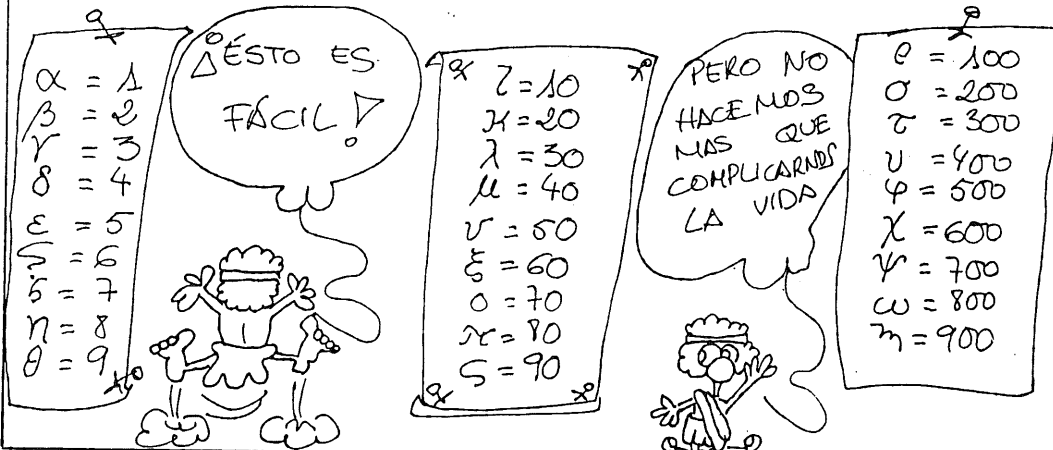 α = 1
β = 2
γ = 3
δ = 4
ε = 5
ς = 6
ζ = 7
η = 8
θ = 9
¡ÉSTO ES
FÁCIL!
ι = 10
κ = 20
λ = 30
μ = 40
ν = 50
ξ = 60
ο = 70
π = 80
ς = 90
PERO NO
HACEMOS
MAS QUE
COMPLICARNOS
LA VIDA
ρ = 100
σ = 200
τ = 300
υ = 400
φ = 500
χ = 600
ψ = 700
ω = 800
ϡ = 900